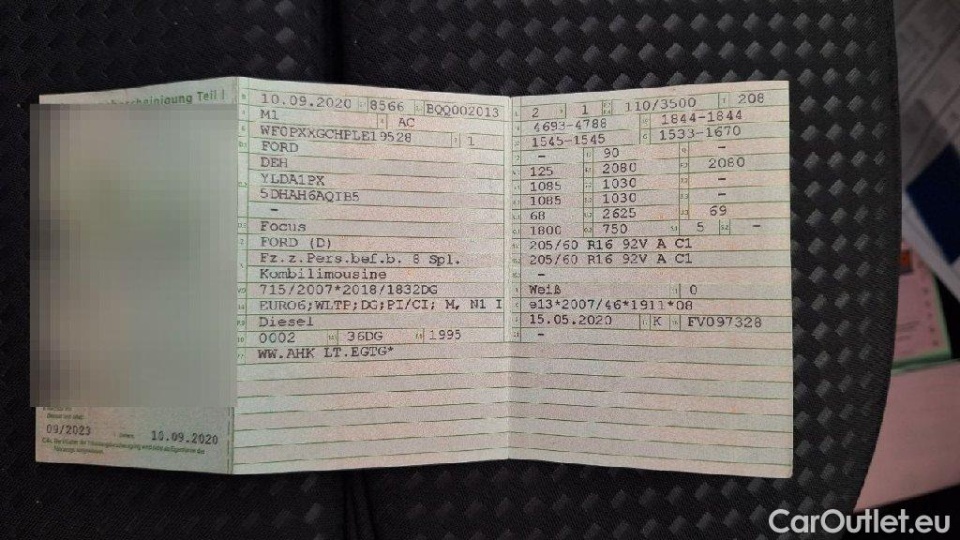 Teil I
09/2023
10.09.2020
10.09.2020 8566 BQQ002013
M1 AC
WF0PXXGCHPLE19528 1
FORD
DEH
YLDA1PX
5DHAH6AQTB5
-
Focus
FORD (D)
Fz.z.Pers.bef.b. 8 Spl.
Kombilimousine
715/2007*2018/1832DG
EURO6;WLTP;DG;PI/CI; M, N1 I
Diesel
0002 36DG 1995
WW.AHK LT.EGTG*
2 1 110/3500 208
4693-4788 1844-1844
1545-1545 1533-1670
- 90 -
125 2080 2080
1085 1030 -
1085 1030 -
68 2625 69
1800 750 5 -
205/60 R16 92V A C1
205/60 R16 92V A C1
-
Weiß 0
e13*2007/46*1911*08
15.05.2020 K FV097328
-
CarOutlet.eu